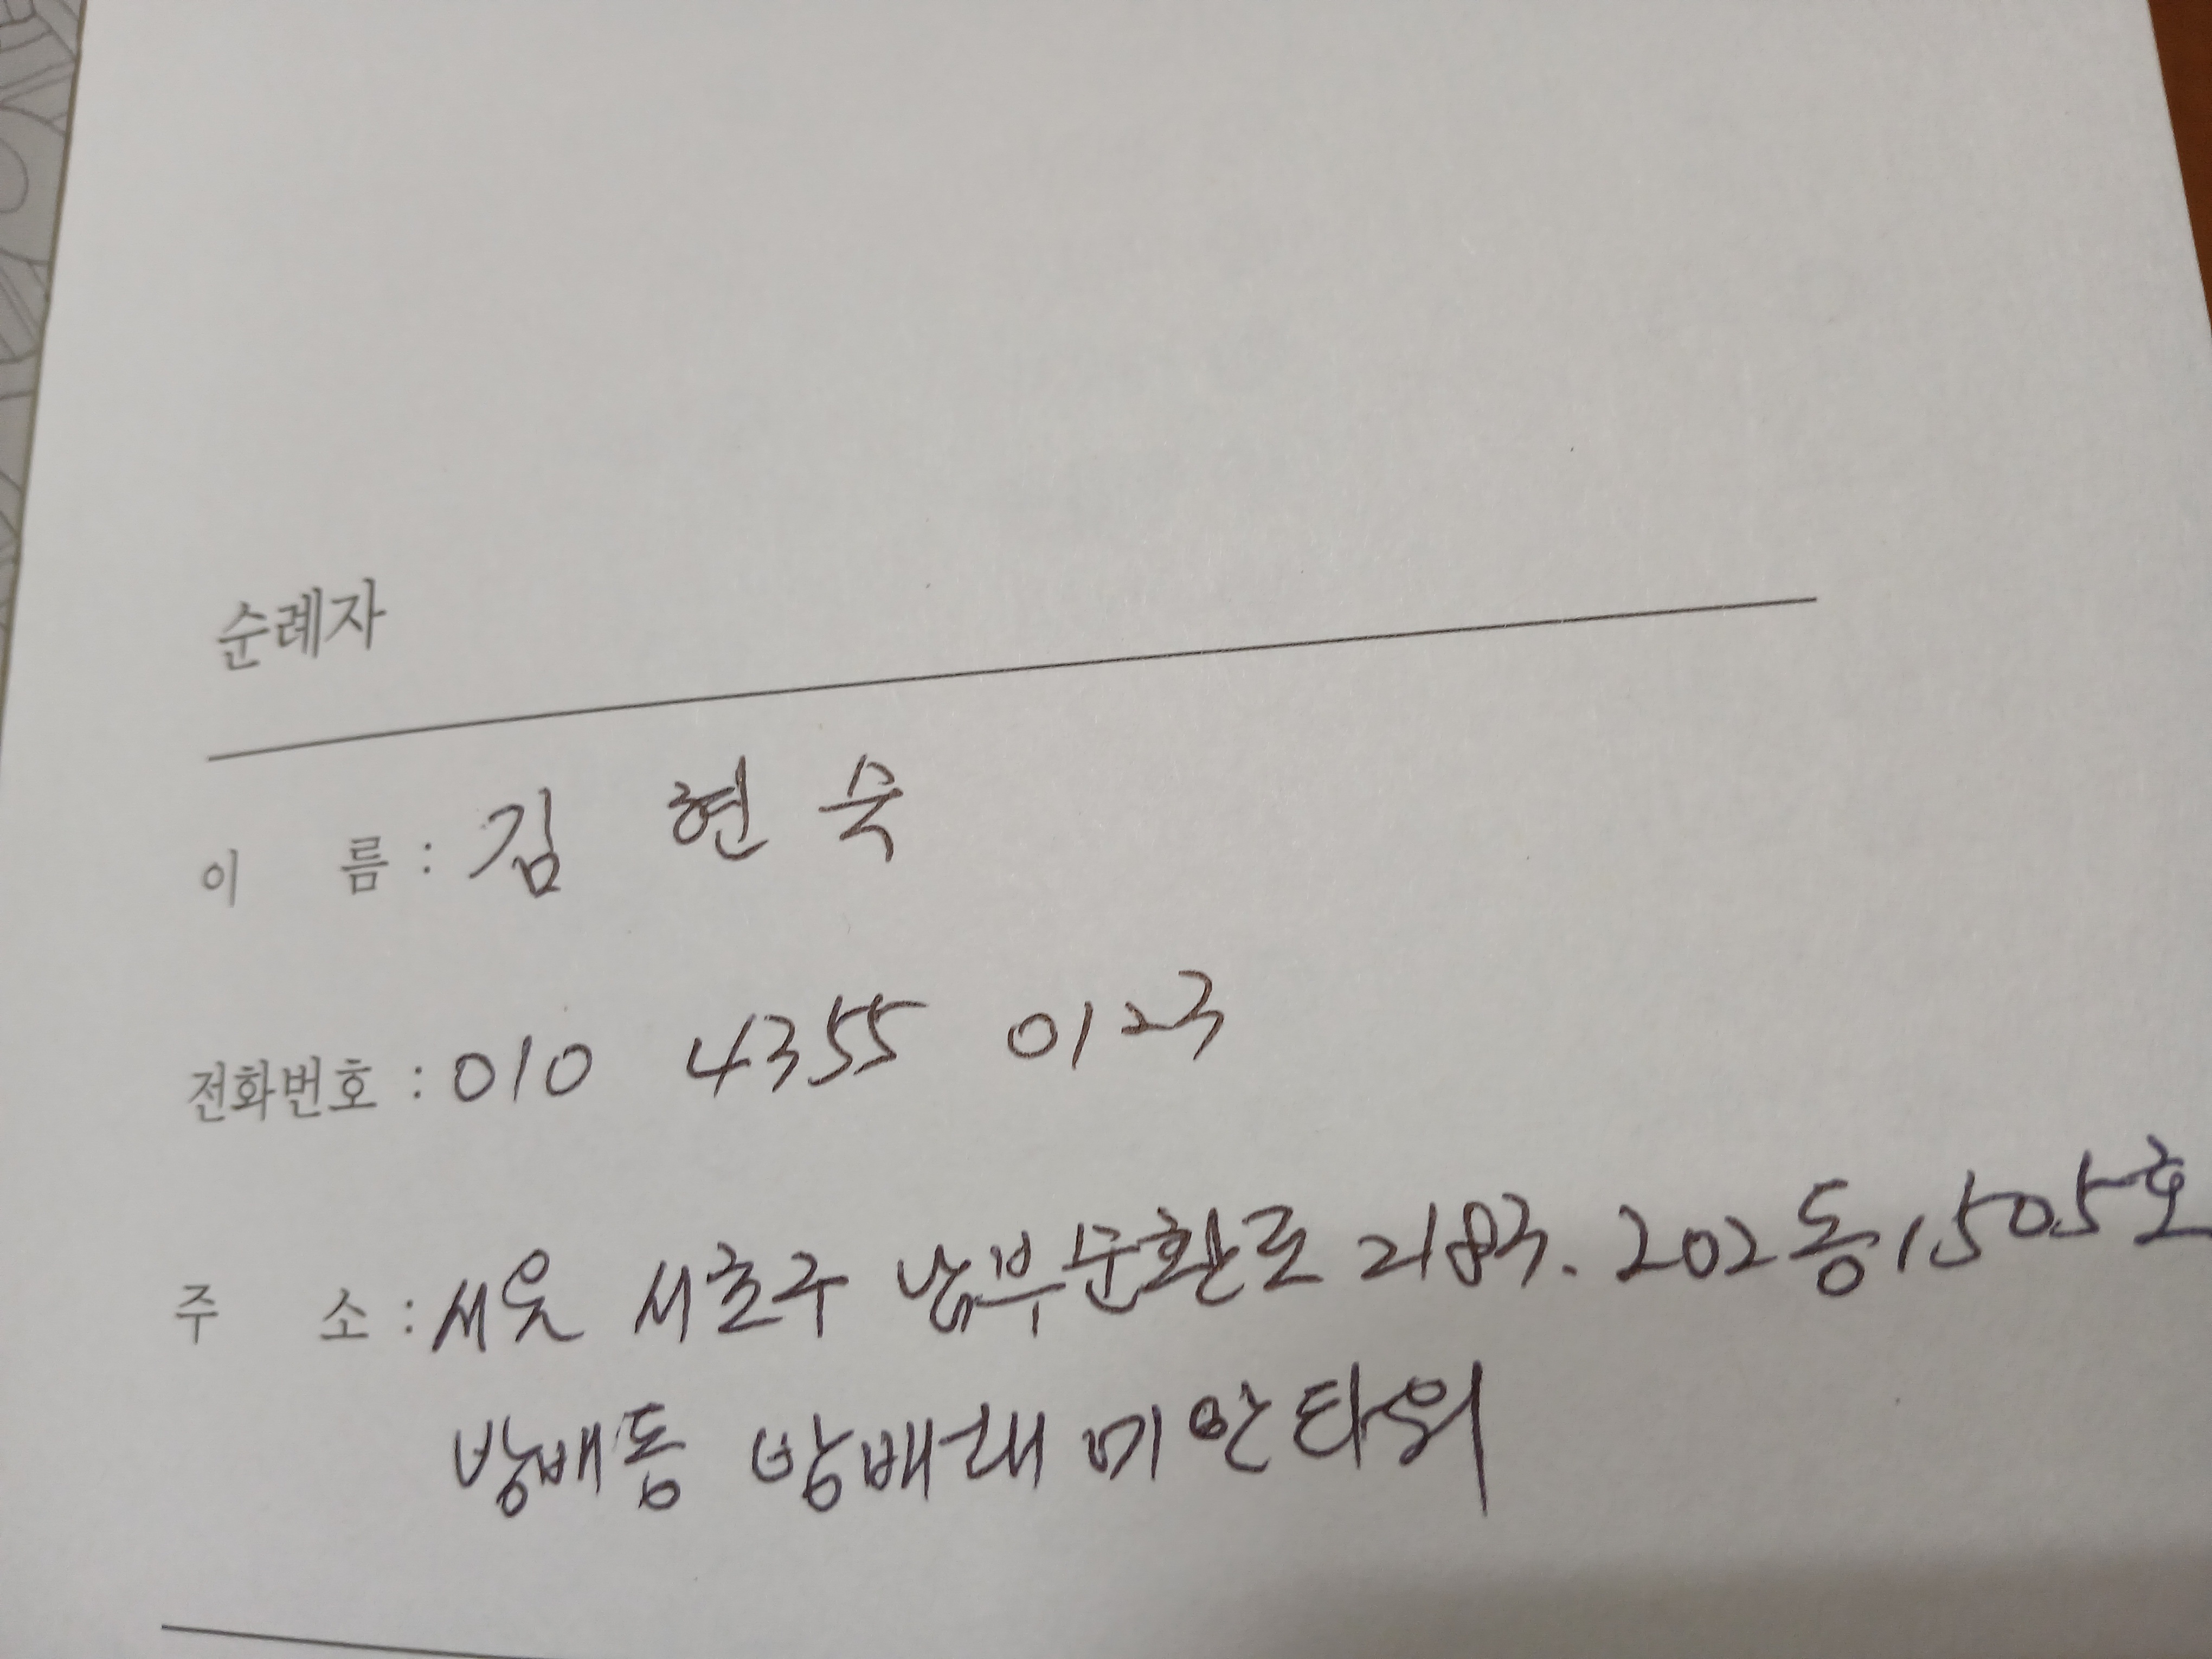 순례자
이 름 : 김 현 숙
전화번호 : 010 4355 0123
주 소 : 서울 서초구 남부순환로 2183. 202동 1505호
방배동 방배래미안타워